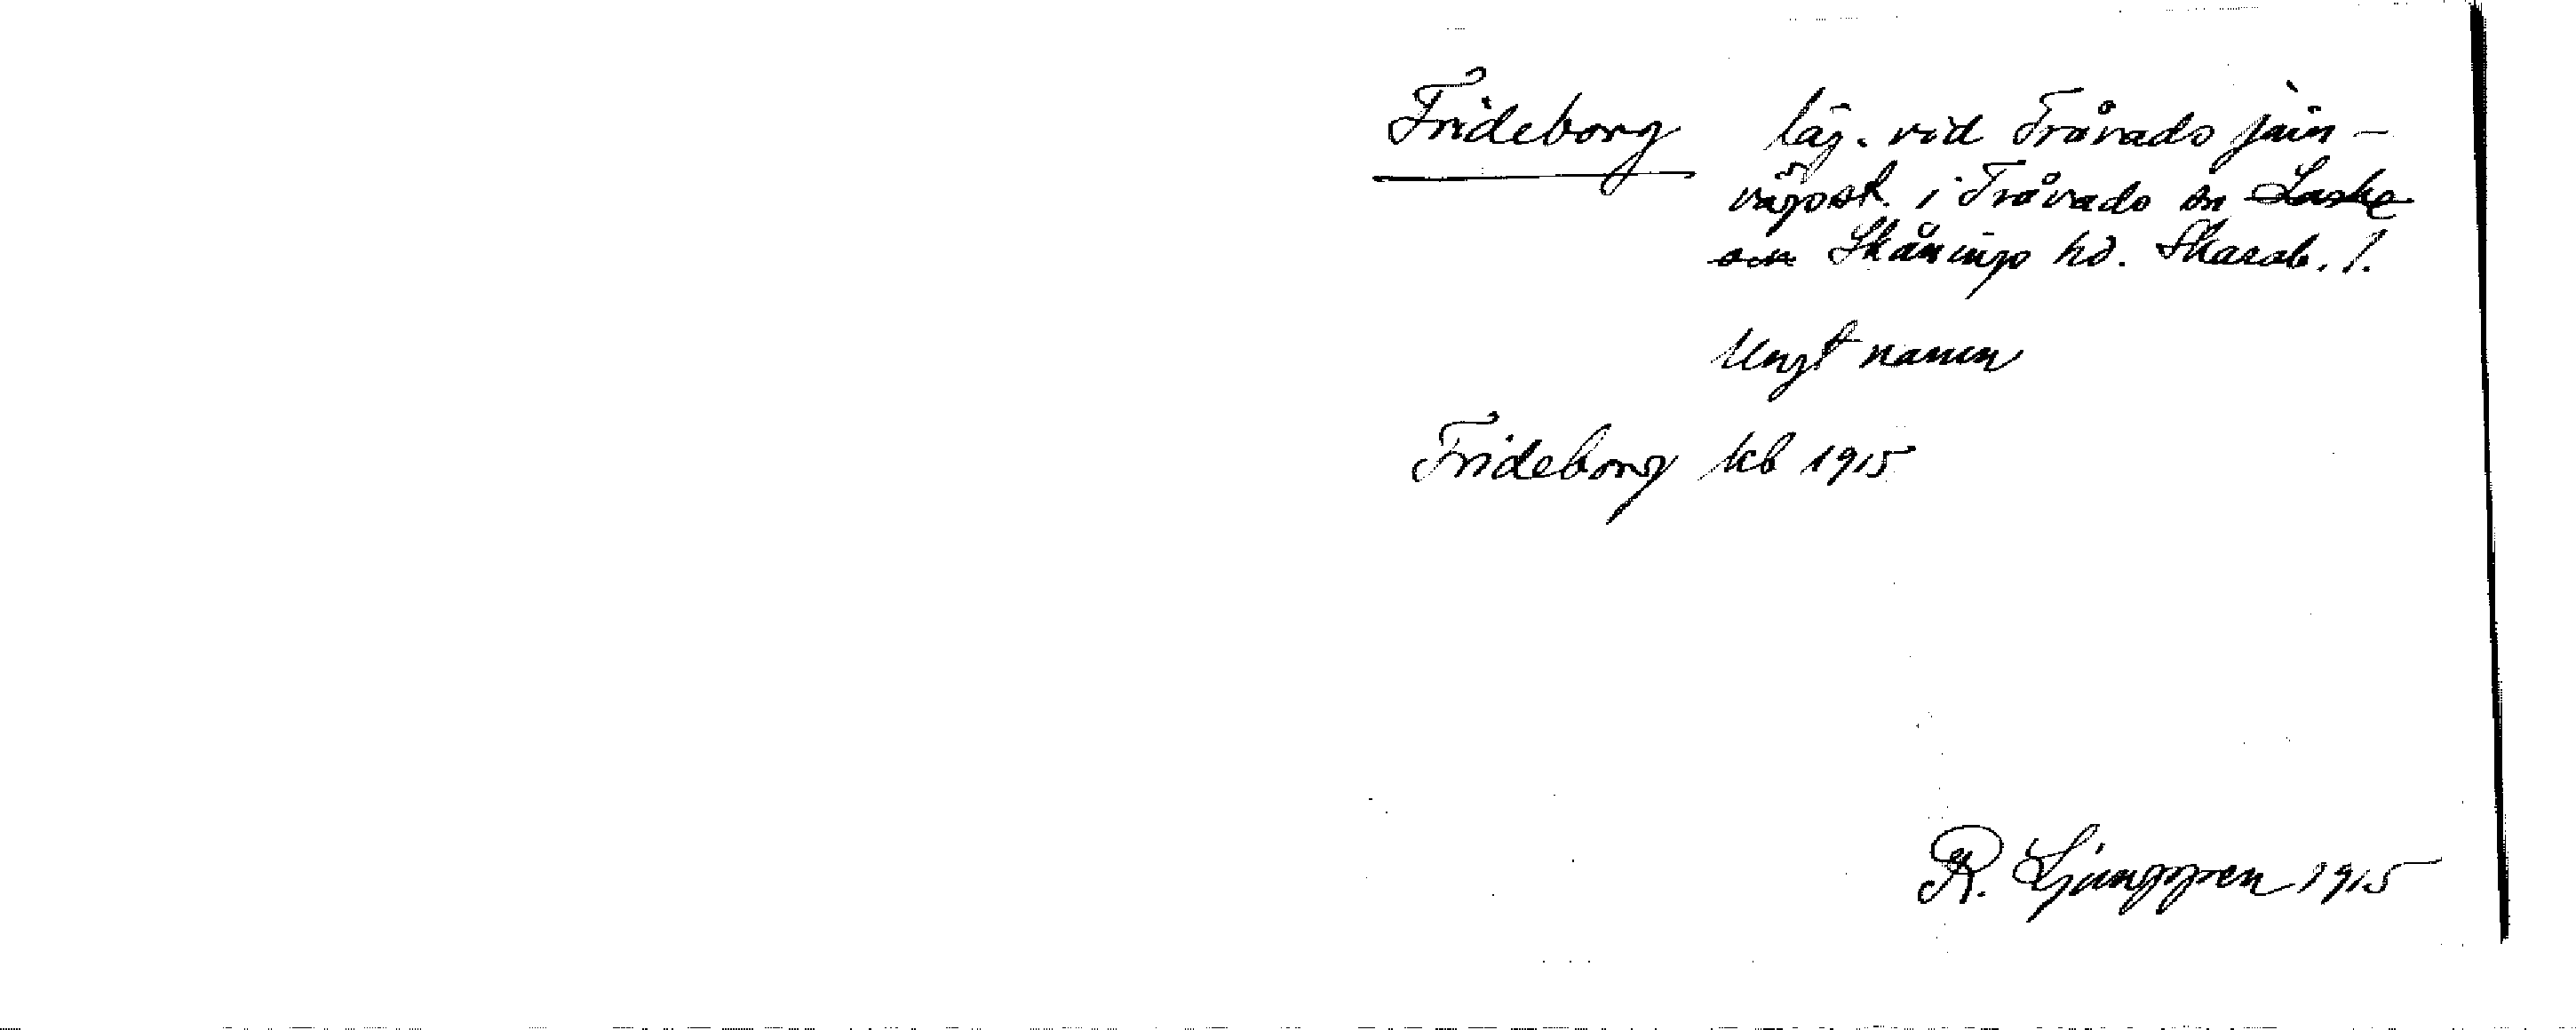 Frideborg läg. vid Tråvads järn-
vägsst. i Tråvads sn Laske
och Skånings hd. Skarab. l.
Ungt namn
Frideborg kb 1915
R. Ljunggren 1915